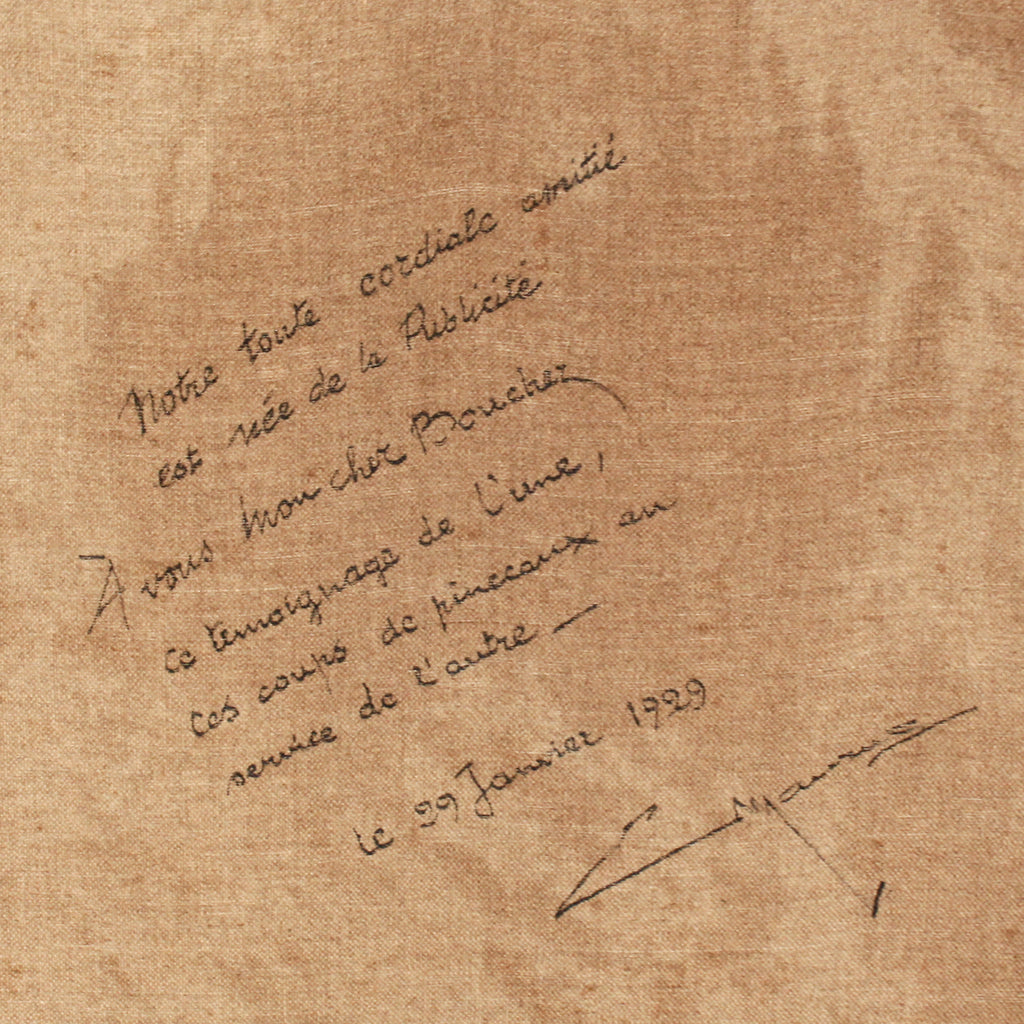 Notre toute cordiale amitié
est née de la Publicité
A vous mon cher Boucher
ce temoignage de l'une,
ces coups de pinceaux au
service de l'autre —
le 29 Janvier 1929